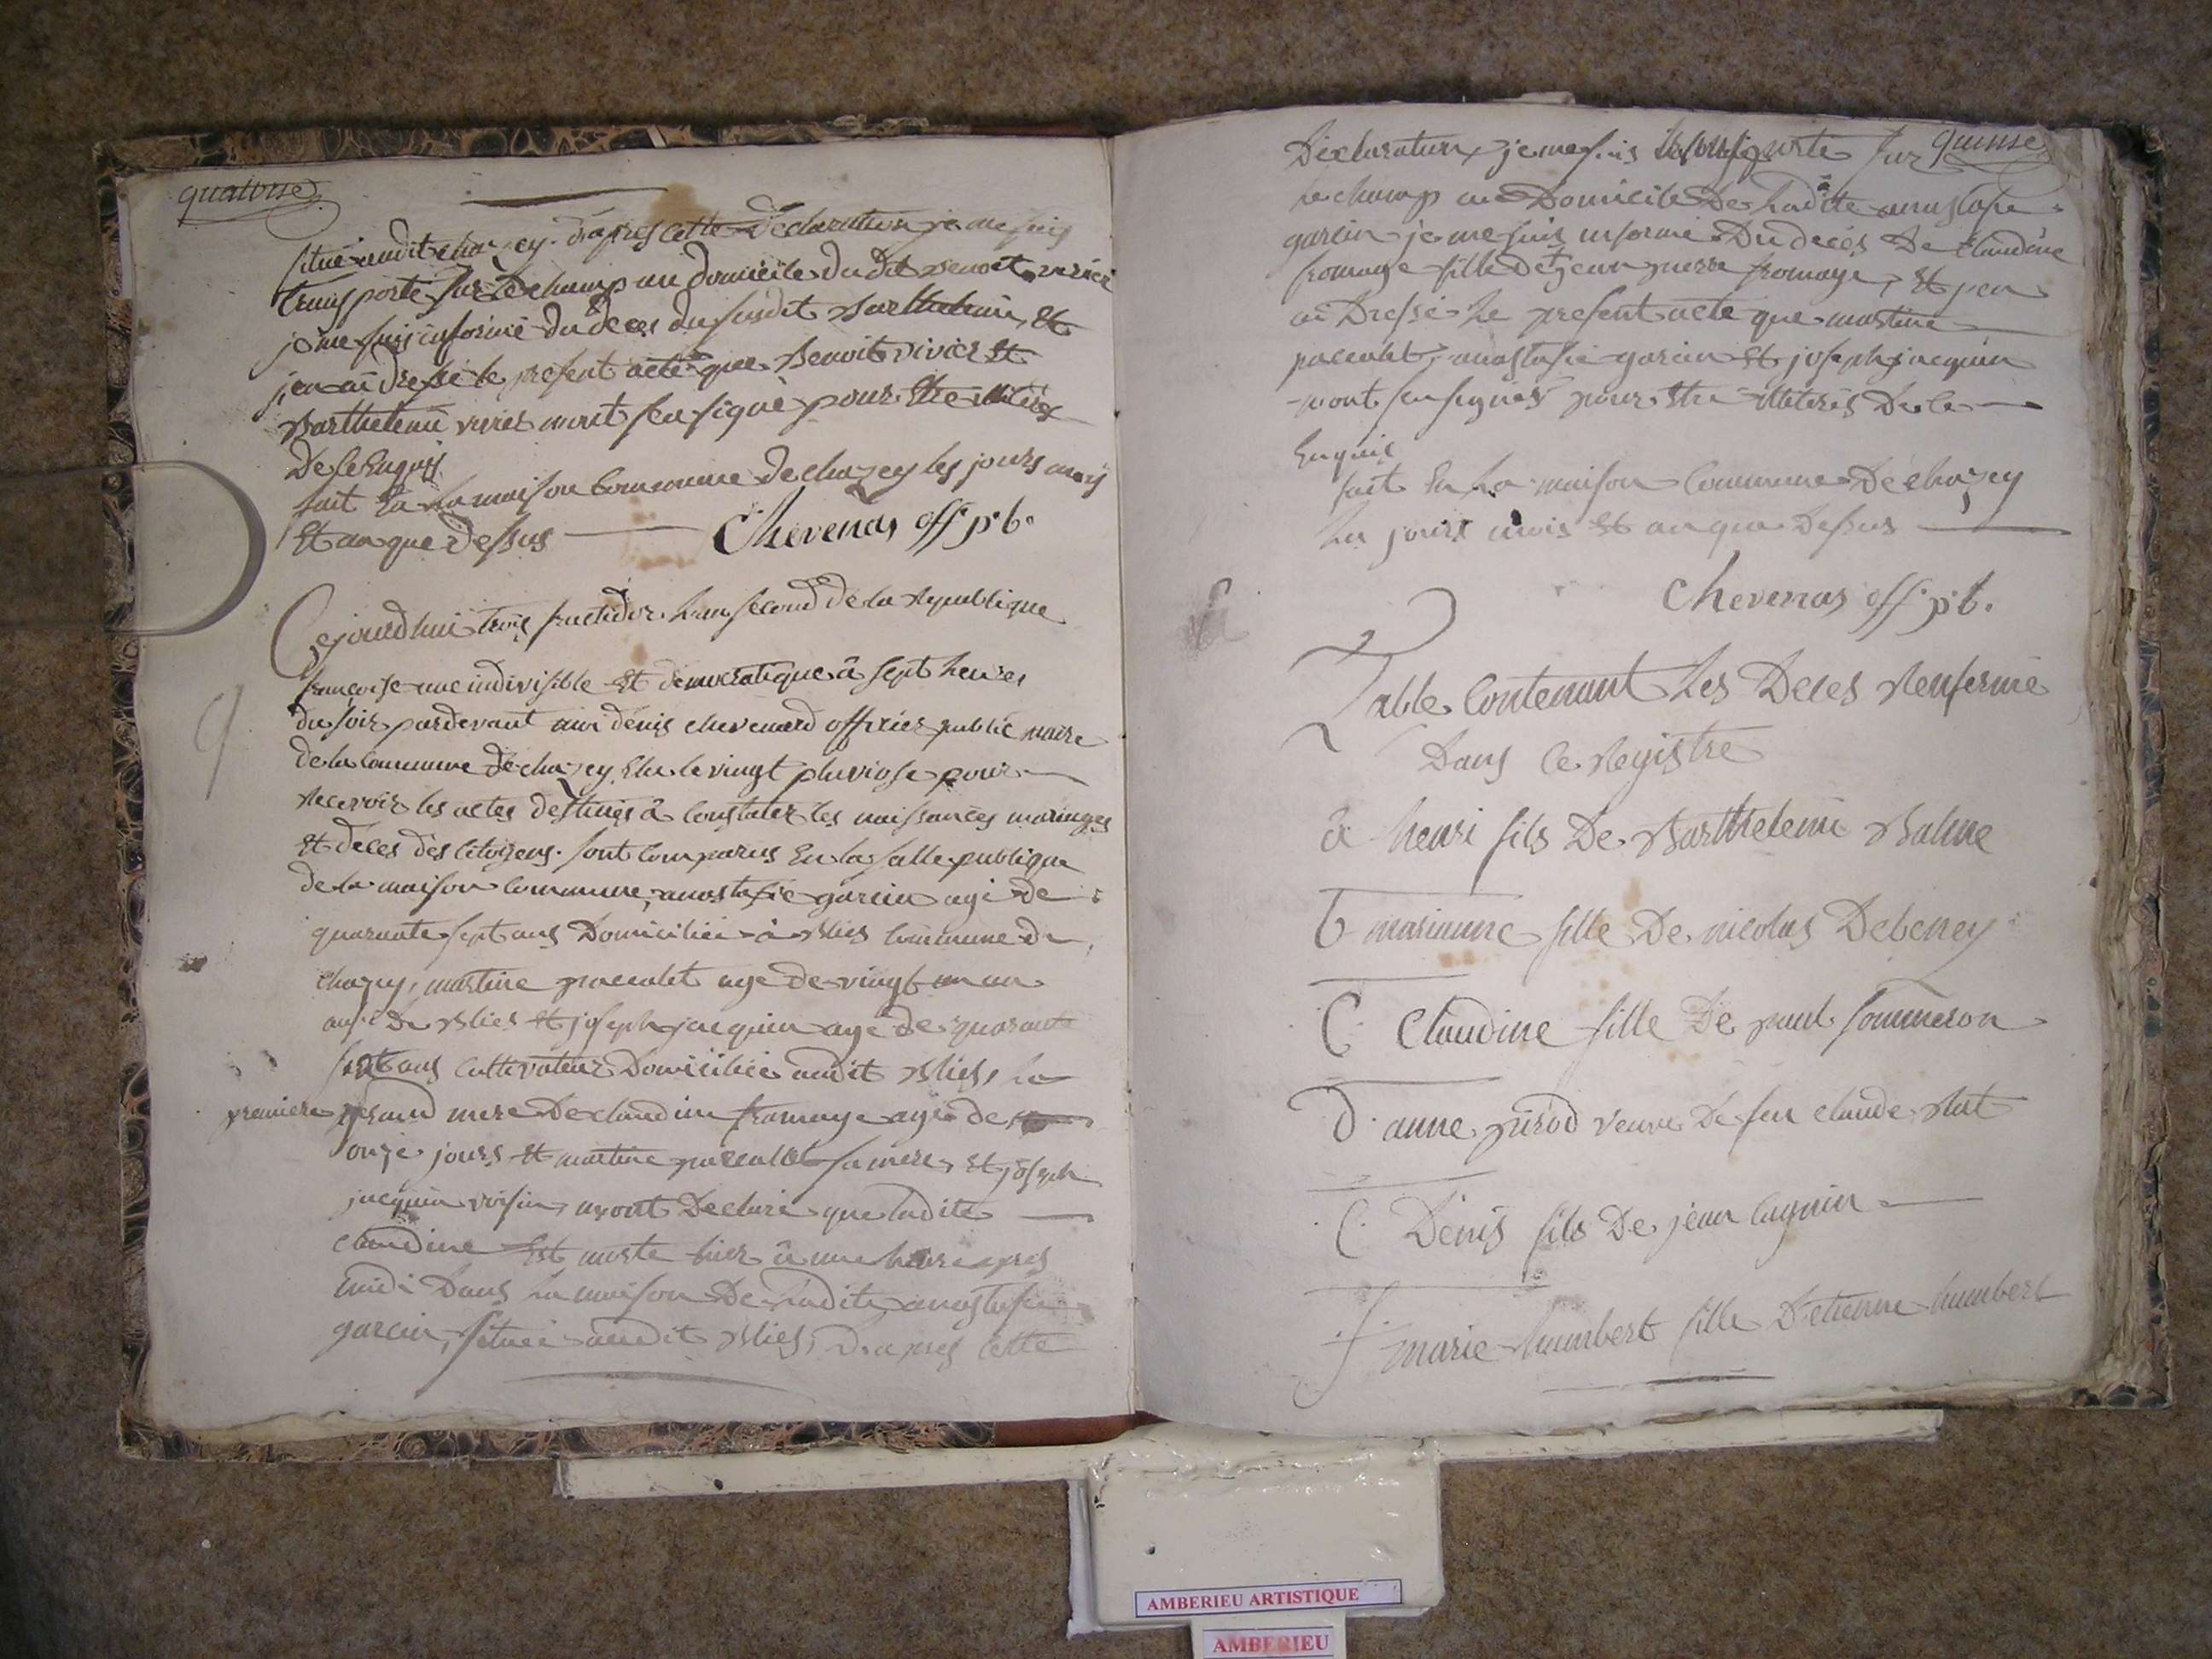 quatorse
situé audit chazey. d'après cette déclaration je me suis
transporté sur le champ au domicile du dit benoit vivier
je me suis informé du deces du susdit barthelemi, et
j'en ai dressé le present acte que benoit vivier et
barthelemi vivier n'ont seu signé pour etre illiteres
de ce enquis
fait en la maison commune de chazey les jours mois
et an que dessus
Chevenas off. pb.
Cejourdhui trois fructidor l'an second de la republique
françoise une indivisible et democratique à sept heures
du soir pardevant moi dénis chevenard officier public maire
de la commune de chazey elu le vingt pluviose pour
recevoir les actes destinés à constater les naissances mariages
et deces des citoyens. sont comparus en la salle publique
de la maison commune, anastasie garcin agé de
quarante sept ans domiciliée à blies commune de
chazey, martine paccalet agé de vingt un an
aussi de blies et joseph jacquin agé de quarante
sept ans cultivateur domiciliée audit blies, la
premiere grand mere de claudine fromage agée de
onze jours et martine paccallet sa mere, et joseph
jacquin voisin, m'ont declaré que ladite
claudine est morte hier à une heure apres
midi dans la maison de ladite anastasie
garcin, située audit blies, d'apres cette
quinse
Déclaration, je me suis transporté sur
le champ au domicile de ladite anastasie
garcin je me suis informé du decés de claudine
fromage fille de jean pierre fromage, et j'en
ai dressé le present acte que martine
paccalet, anastasie garcin et joseph jacquin
n'ont seu signés pour etre illiterés de ce
enquis
fait en la maison commune de chazey
les jours mois et an que dessus
Chevenas off. pb.
Table contenant les deces renfermé
dans ce registre
a henri fils de barthelemi balme
b marianne fille de nicolas debeney
C Claudine fille de paul sommeron
d anne pirod veuve de feu claude
C Dénis fils de jean caguin
f marie humbert fille d'etienne humbert
AMBERIEU ARTISTIQUE
AMBERIEU